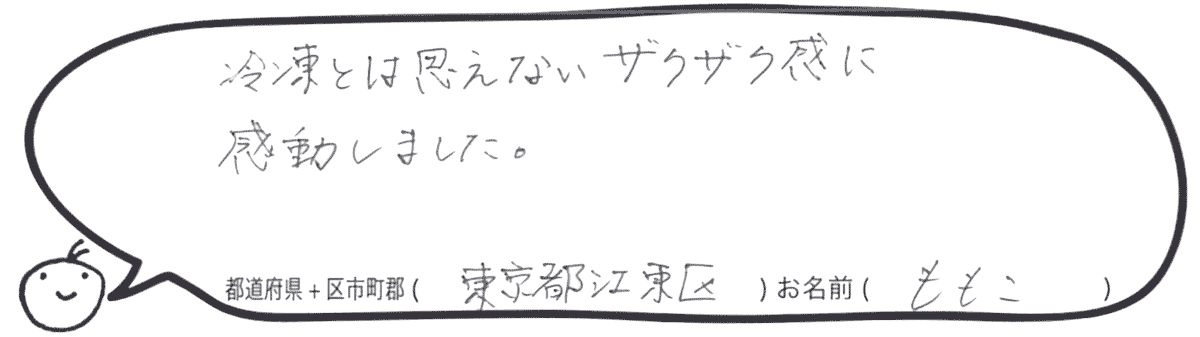 冷凍とは思えないザクザク感に
感動しました。
都道府県+区市町郡( 東京都江東区 )お名前( ももこ )